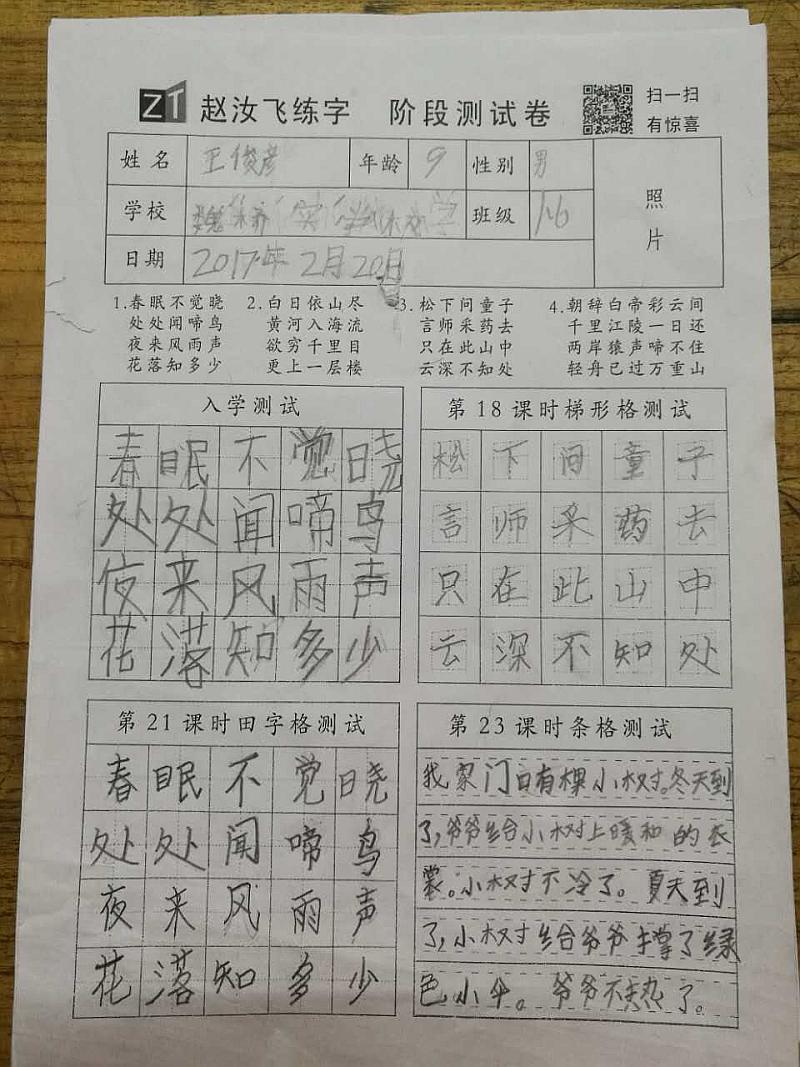 ZT 赵汝飞练字 阶段测试卷 扫一扫
有惊喜
姓名 王俊彦 年龄 9 性别 男 照片
学校 班级
日期 2017年2月20日
1.春眠不觉晓 2.白日依山尽 3.松下问童子 4.朝辞白帝彩云间
处处闻啼鸟 黄河入海流 言师采药去 千里江陵一日还
夜来风雨声 欲穷千里目 只在此山中 两岸猿声啼不住
花落知多少 更上一层楼 云深不知处 轻舟已过万重山
入学测试
春眠不觉晓
处处闻啼鸟
夜来风雨声
花落知多少
第18课时梯形格测试
松下问童子
言师采药去
只在此山中
云深不知处
第21课时田字格测试
春眠不觉晓
处处闻啼鸟
夜来风雨声
花落知多少
第23课时条格测试
我家门口有棵小树。冬天到
了,爷爷给小树上暖和的衣
裳。小树不冷了。夏天到
了,小树给爷爷撑了绿
色小伞。爷爷不热了。